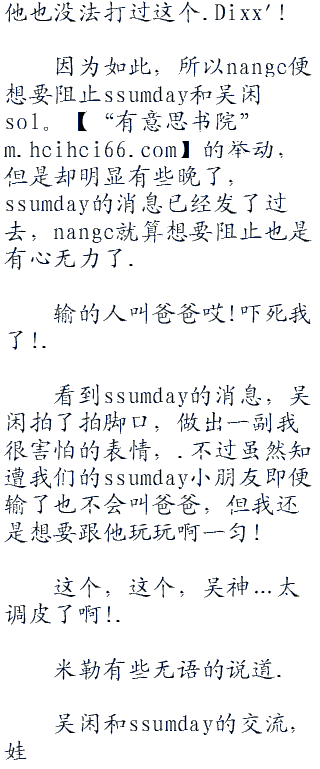 他也没法打过这个.Dixx'!
因为如此，所以nangc便
想要阻止ssumday和吴闲
sol。【“有意思书院”
m.hcihci66.com】的举动，
但是却明显有些晚了，
ssumday的消息已经发了过
去，nangc就算想要阻止也是
有心无力了.
输的人叫爸爸哎!吓死我
了!.
看到ssumday的消息，吴
闲拍了拍脚口，做出一副我
很害怕的表情，.不过虽然知
遭我们的ssumday小朋友即便
输了也不会叫爸爸，但我还
是想要跟他玩玩啊一匀!
这个，这个，吴神…太
调皮了啊!.
米勒有些无语的说道.
吴闲和ssumday的交流，
娃